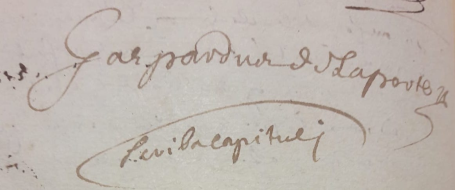 Gaspardus de Laportes
scriba capituli